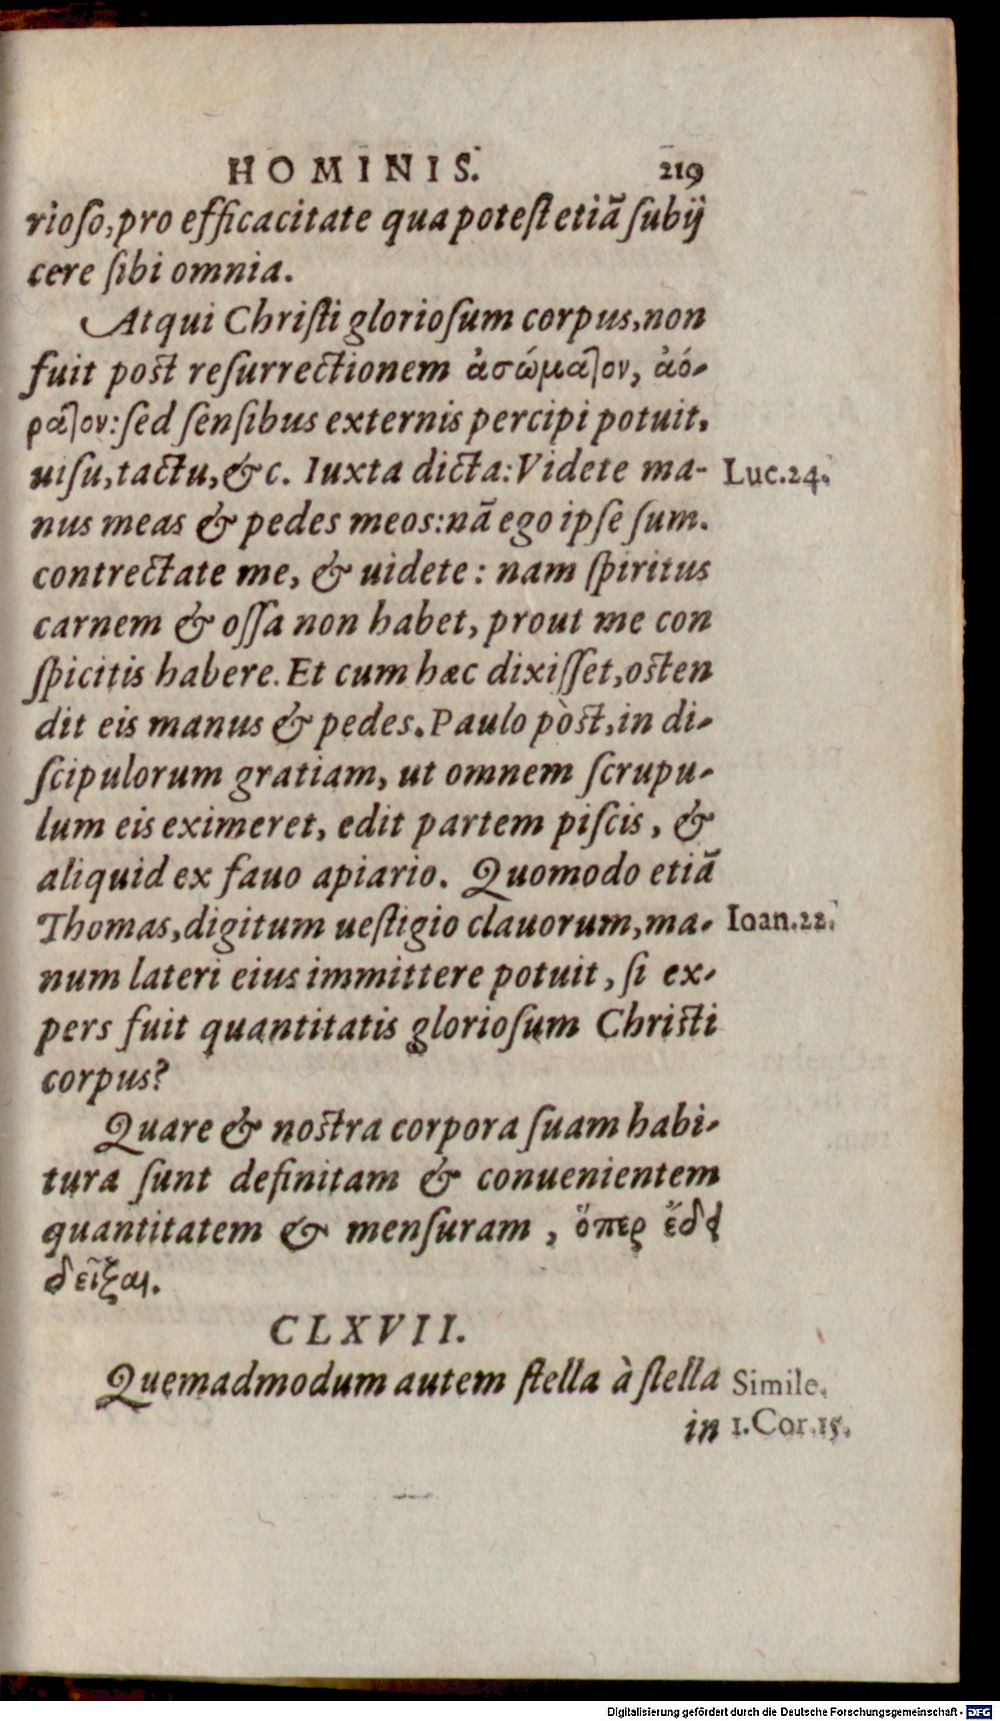 HOMINIS. 219
rioſo, pro efficacitate qua poteſt etiã ſubij
cere ſibi omnia.
Atqui Chriſti glorioſum corpus, non
fuit poſt reſurrectionem ἀσώματον, ἀό-
ρατον: ſed ſenſibus externis percipi potuit,
uiſu, tactu, &c. Iuxta dicta: Videte ma- Luc.24.
nus meas & pedes meos: nã ego ipſe ſum.
contrectate me, & uidete: nam ſpiritus
carnem & oſſa non habet, prout me con
ſpicitis habere. Et cum hæc dixiſſet, oſten
dit eis manus & pedes. Paulo pòſt, in di-
ſcipulorum gratiam, ut omnem ſcrupu-
lum eis eximeret, edit partem piſcis, &
aliquid ex fauo apiario. Quomodo etiã
Thomas, digitum ueſtigio clauorum, ma- Ioan.22.
num lateri eius immittere potuit, ſi ex-
pers fuit quantitatis glorioſum Chriſti
corpus?
Quare & noſtra corpora ſuam habi-
tura ſunt definitam & conuenientem
quantitatem & menſuram, ὅπερ ἔδει
δεῖξαι.
CLXVII.
Quemadmodum autem ſtella à ſtella Simile.
in 1.Cor.15.
Digitalisierung gefördert durch die Deutsche Forschungsgemeinschaft - DFG